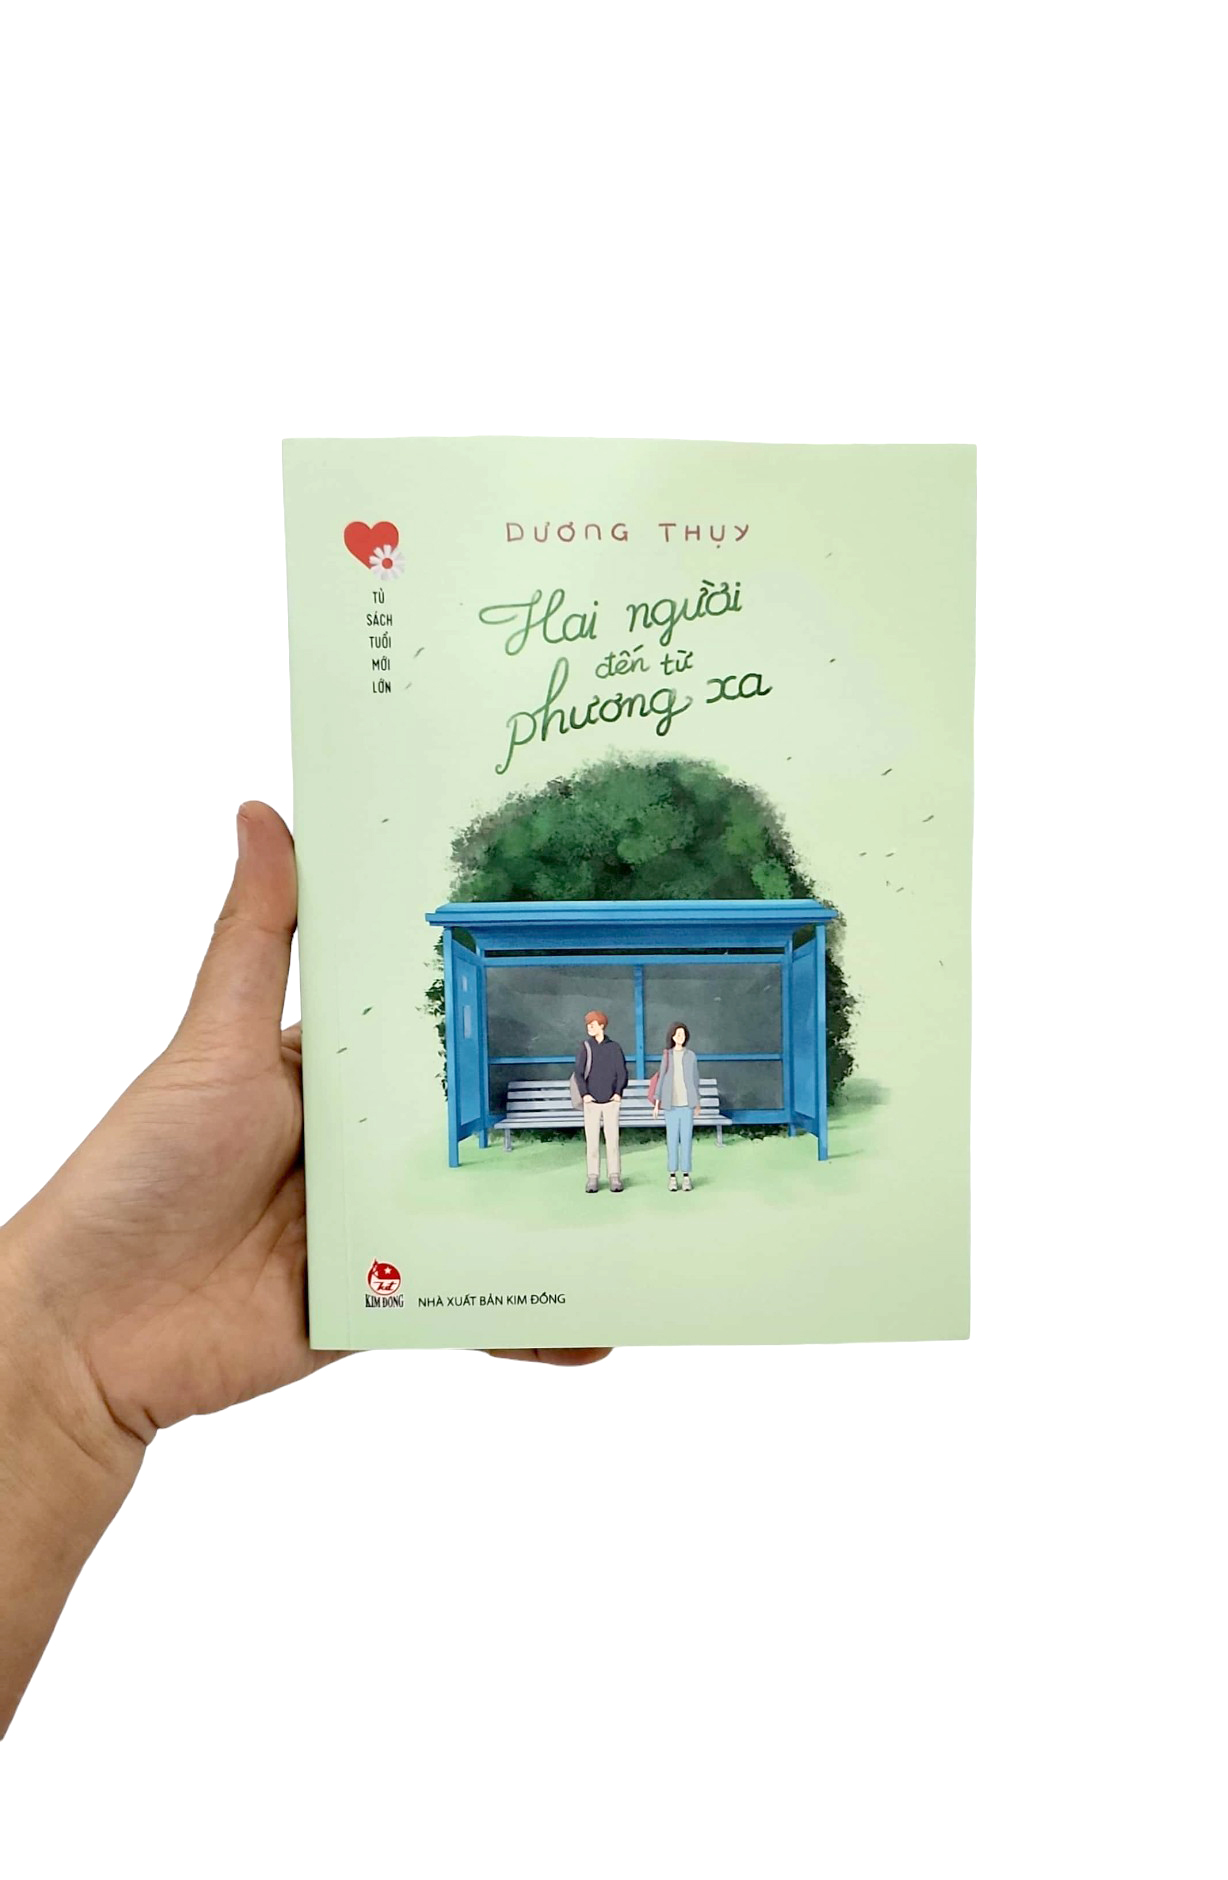 DƯƠNG THỤY
Hai người
đến từ
phương xa
TỦ
SÁCH
TUỔI
MỚI
LỚN
kđ
KIM ĐỒNG
NHÀ XUẤT BẢN KIM ĐỒNG